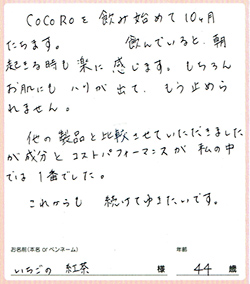 COCOROを飲み始めて10ヶ月
たちます。 飲んでいると、朝
起きる時も楽に感じます。もちろん
お肌にもハリが出て、もう止めら
れません。
他の製品と比較させていただきました
が成分とコストパフォーマンスが私の中
では1番でした。
これからも 続けてゆきたいです。
お名前(本名 or ペンネーム) 年齢
いちごの紅茶 様 44 歳